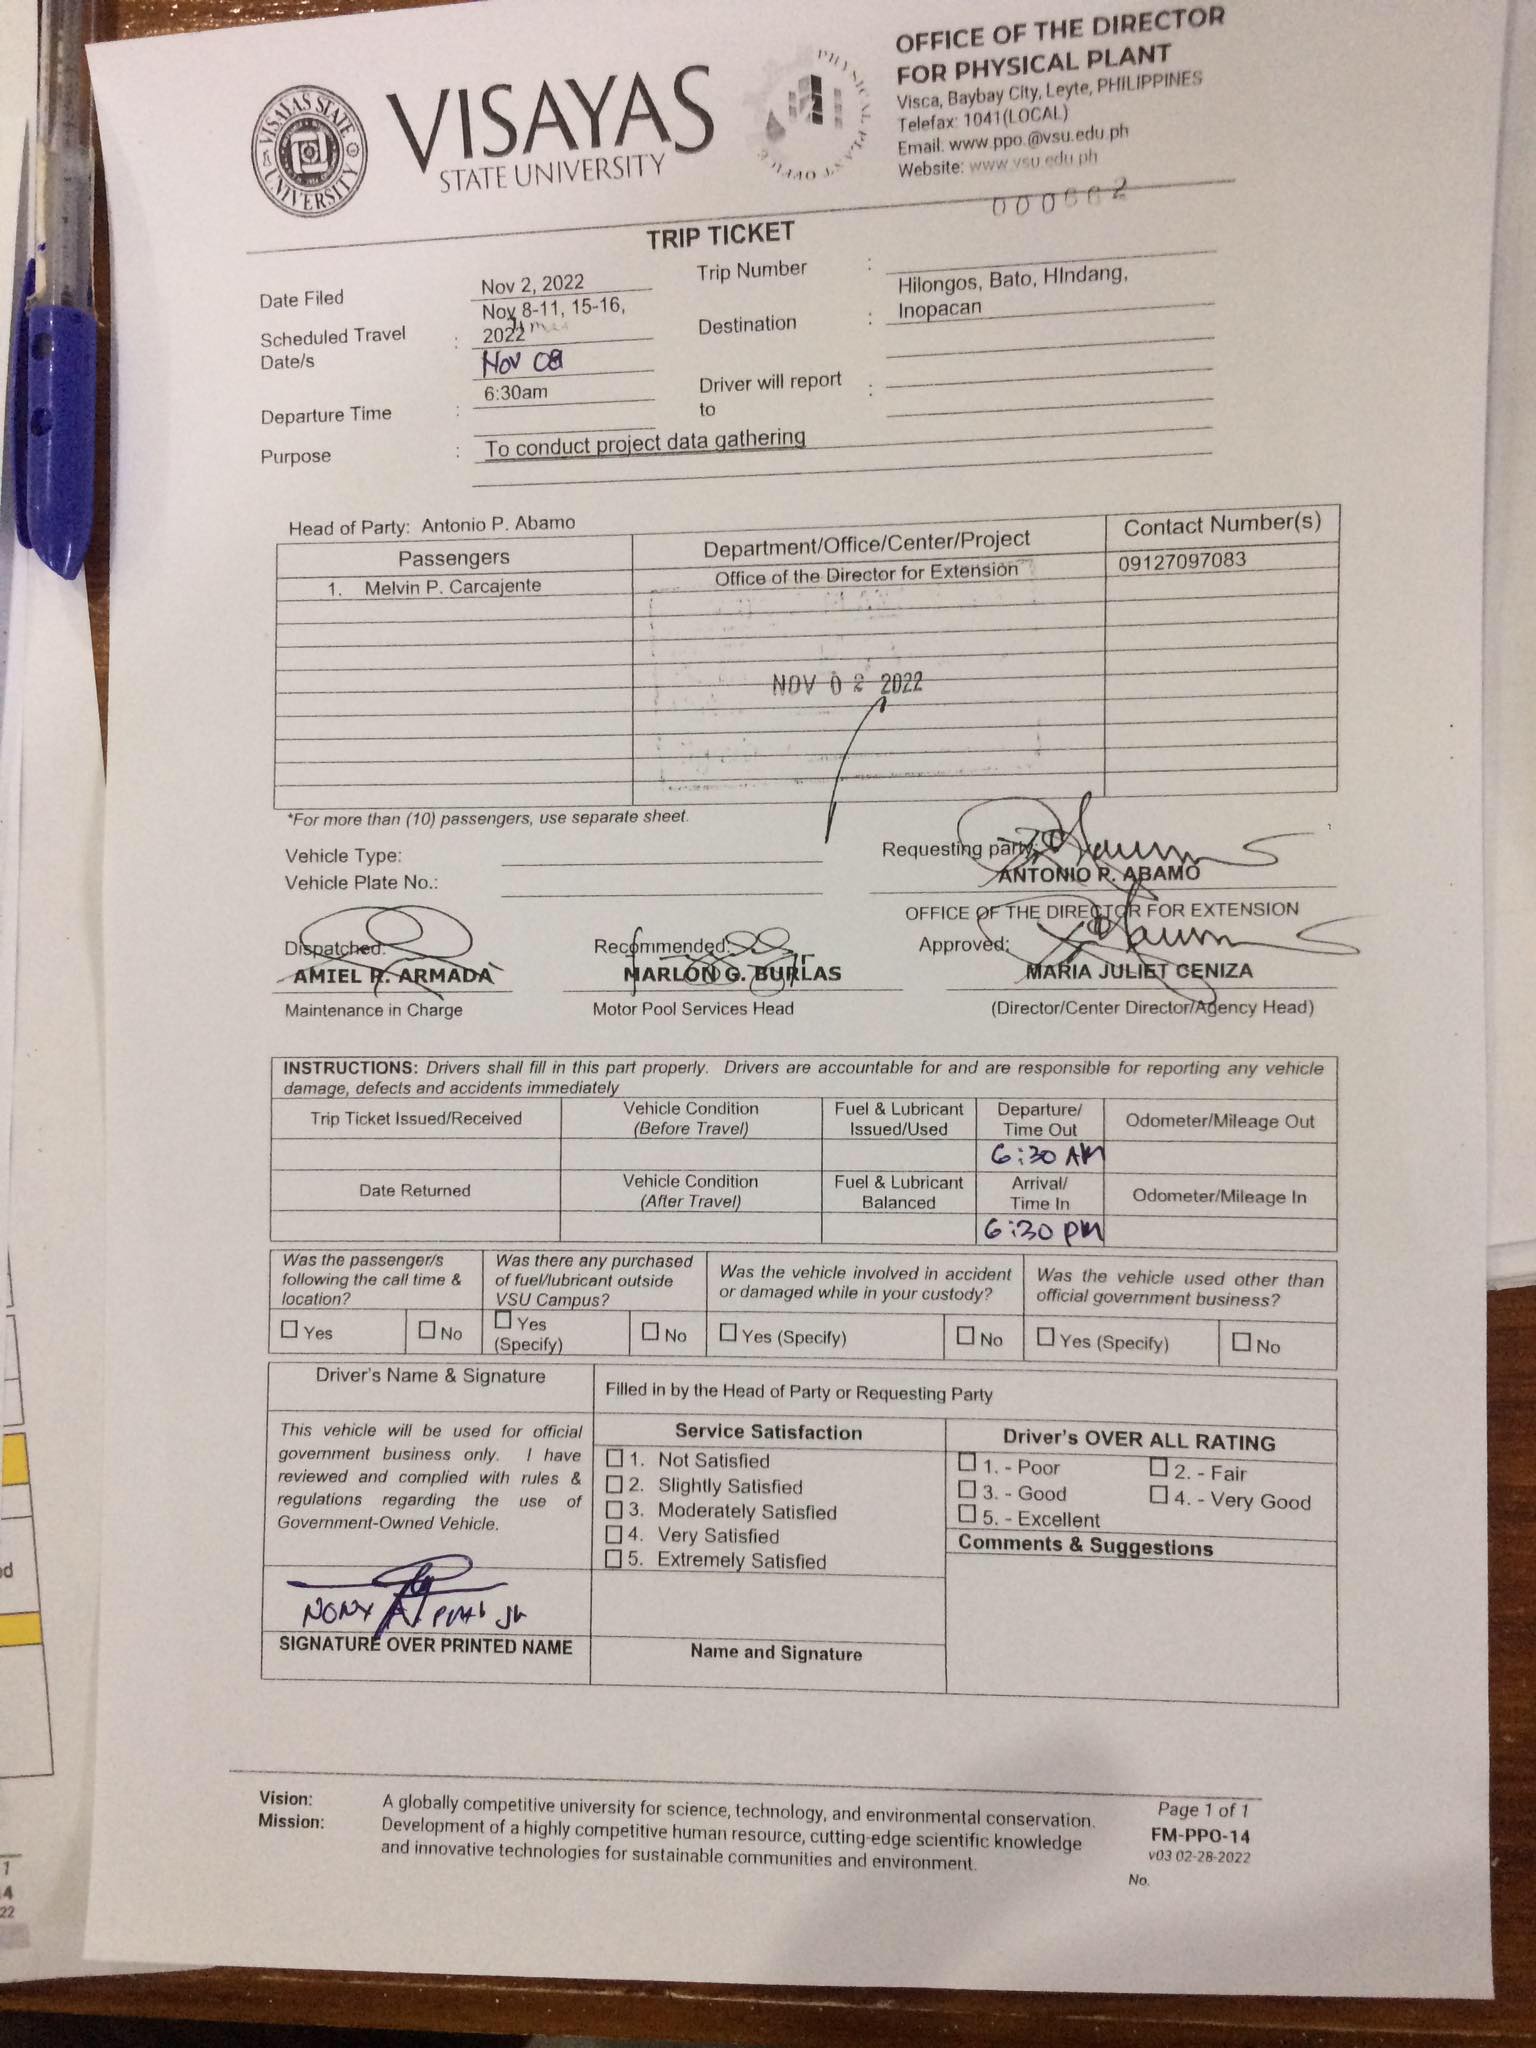 VISAYAS STATE UNIVERSITY
VISAYAS
STATE UNIVERSITY
PHYSICAL PLANT OFFICE
OFFICE OF THE DIRECTOR
FOR PHYSICAL PLANT
Visca, Baybay City, Leyte, PHILIPPINES
Telefax: 1041(LOCAL)
Email: www.ppo.@vsu.edu.ph
Website: www.vsu.edu.ph
TRIP TICKET
Date Filed Nov 2, 2022
Trip Number :
Scheduled Travel Date/s : Nov 8-11, 15-16, 2022
Nov 08
Destination : Hilongos, Bato, HIndang,
Inopacan
Departure Time : 6:30am
Driver will report to :
Purpose : To conduct project data gathering
Head of Party: Antonio P. Abamo
Passengers Department/Office/Center/Project Contact Number(s)
1. Melvin P. Carcajente Office of the Director for Extension 09127097083
NOV 02 2022
*For more than (10) passengers, use separate sheet.
Vehicle Type:
Vehicle Plate No.:
Requesting party:
ANTONIO P. ABAMO
OFFICE OF THE DIRECTOR FOR EXTENSION
Dispatched: Recommended: Approved:
AMIEL R. ARMADA MARLON G. BURLAS MARIA JULIET CENIZA
Maintenance in Charge Motor Pool Services Head (Director/Center Director/Agency Head)
INSTRUCTIONS: Drivers shall fill in this part properly. Drivers are accountable for and are responsible for reporting any vehicle
damage, defects and accidents immediately
Trip Ticket Issued/Received Vehicle Condition (Before Travel) Fuel & Lubricant Issued/Used Departure/ Time Out Odometer/Mileage Out
6:30 AM
Date Returned Vehicle Condition (After Travel) Fuel & Lubricant Balanced Arrival/ Time In Odometer/Mileage In
6:30 PM
Was the passenger/s following the call time & location? Was there any purchased of fuel/lubricant outside VSU Campus? Was the vehicle involved in accident or damaged while in your custody? Was the vehicle used other than official government business?
Yes No Yes (Specify) No Yes (Specify) No Yes (Specify) No
Driver's Name & Signature
Filled in by the Head of Party or Requesting Party
This vehicle will be used for official
government business only. I have
reviewed and complied with rules &
regulations regarding the use of
Government-Owned Vehicle.
Service Satisfaction
1. Not Satisfied
2. Slightly Satisfied
3. Moderately Satisfied
4. Very Satisfied
5. Extremely Satisfied
Driver's OVER ALL RATING
1. - Poor 2. - Fair
3. - Good 4. - Very Good
5. - Excellent
Comments & Suggestions
SIGNATURE OVER PRINTED NAME
Name and Signature
Vision: A globally competitive university for science, technology, and environmental conservation.
Mission: Development of a highly competitive human resource, cutting-edge scientific knowledge
and innovative technologies for sustainable communities and environment.
Page 1 of 1
FM-PPO-14
v03 02-28-2022
No.